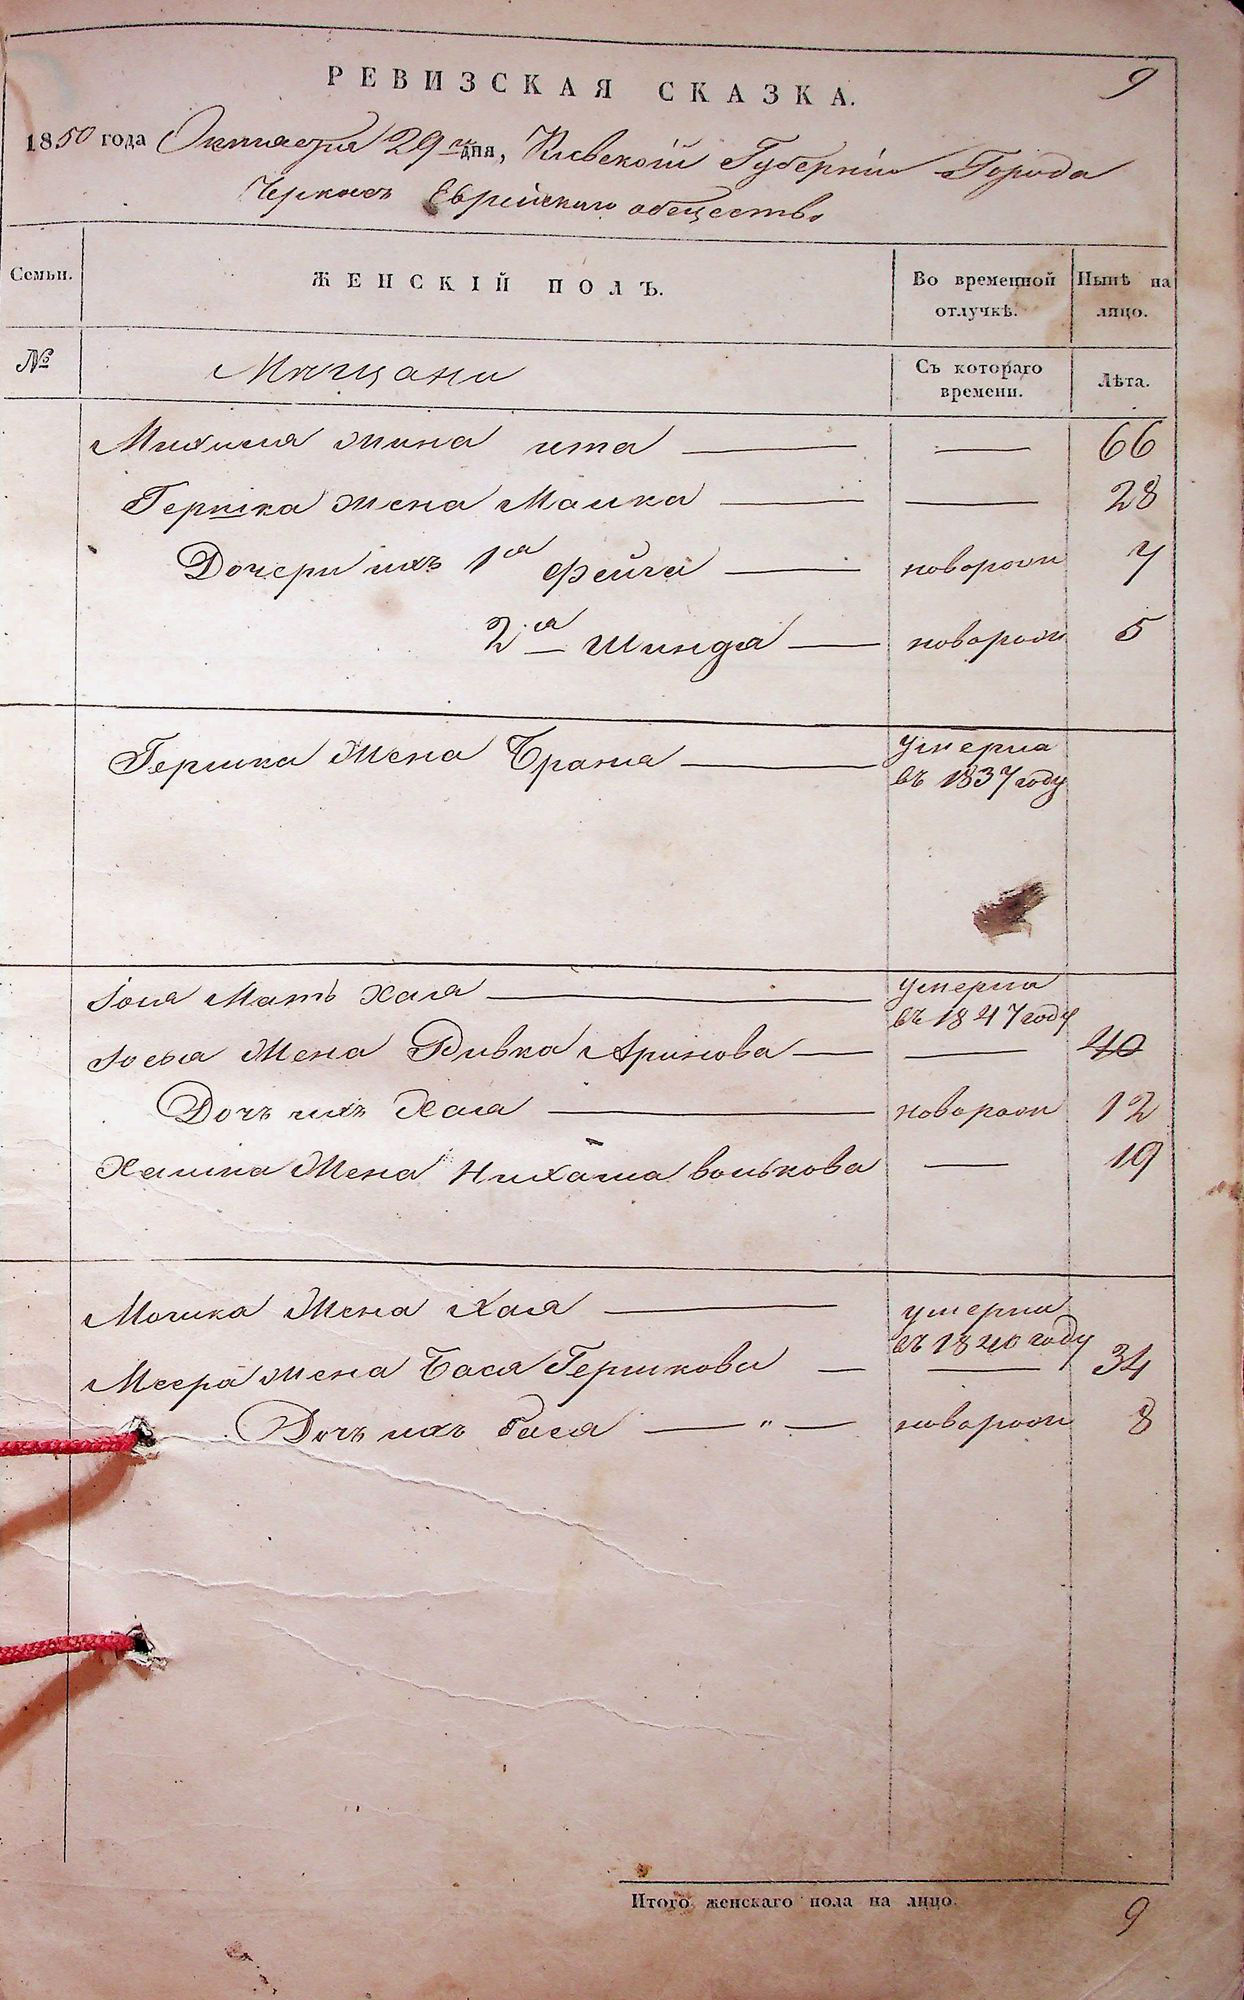 9
РЕВИЗСКАЯ СКАЗКА.
1850 года Октября 29 дня, Киевской Губернии Города
Черкасъ Еврейскаго общества
Семьи.
ЖЕНСКІЙ ПОЛЪ.
Во временной отлучкѣ.
Нынѣ на лицо.
№
Мѣщане
Съ котораго времени.
Лѣта.
Михеля жена ита — — 66
Гершка жена Малка — — 28
Дочери ихъ 1ая Фейга — новорожд 7
2ая Шинда — новорож 5
Гершка Жена Брана — умерла
въ 1837 году
Іося Мать Хая — умерла
въ 1847 году
Іосья Жена Ривка Аринова — — 40
Дочь ихъ Хая — новорожд 12
Хаимка Жена Нихама волькова — 19
Мошка Жена Хая — умерла
въ 1840 году
Меера жена Бася Гершкова — — 34
Дочь ихъ бася — " — новорожд 8
Итого женскаго пола на лицо.
9